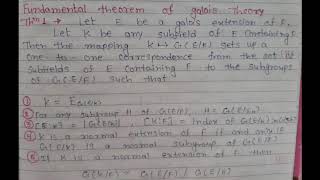 Fundamental theorem of galois Theory
Thm 1 → Let E be a galois extension of F.
Let K be any subfield of E containing F.
Then the mapping K ↔ G(E/K) sets up a
one to one correspondence from the set of
subfields of E containing F to the subgroups
of G(E/F) such that
① K = E_G(E/K)
② For any subgroup H of G(E/F), H = G(E/E_H)
③ [E:K] = |G(E/K)|, [K:F] = index of G(E/K) in G(E/F)
④ K is a normal extension of F if and only if
G(E/K) is a normal subgroup of G(E/F)
⑤ If K is a normal extension of F then
G(K/F) ≅ G(E/F) / G(E/K)